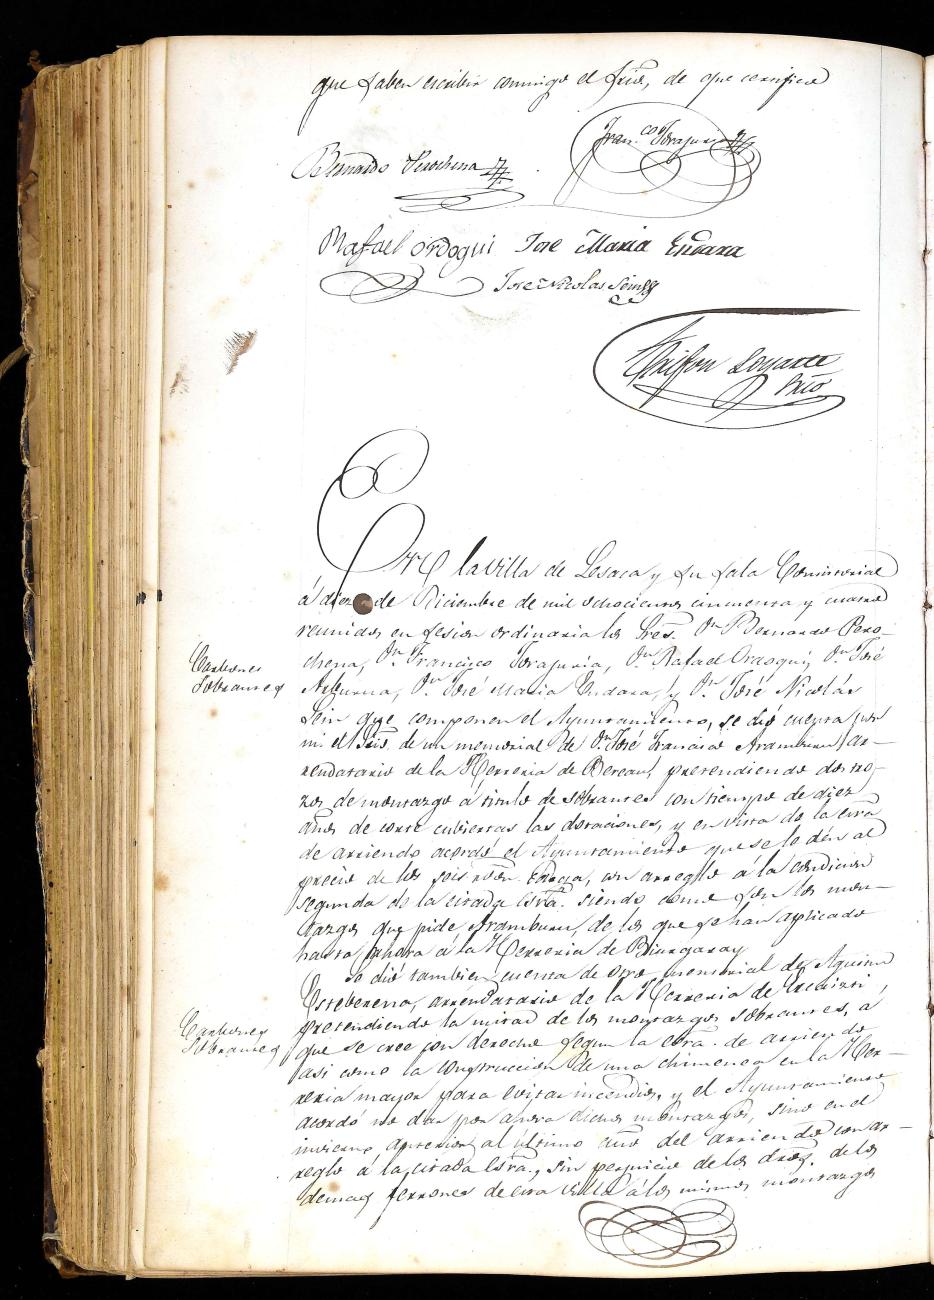 que saben escribir conmigo el Srio, de que certifico
Franco Torajuria
Bernardo Perochena
Rafael Ordoqui Jose Maria Endara
Jose Nicolas Sein
Loyarte
Srio
En la villa de Lesaca y su sala Consistorial
á diez de Diciembre de mil ochocientos cincuenta y cuatro
reunidos en sesion ordinaria los Sres. Dn Bernardo Pero-
chena, Dn Francisco Torajuria, Dn Rafael Ordoqui, Dn José
Carbones
sobrantes
Arburua, Dn José Maria Endara, y Dn José Nicolás
Sein que componen el Ayuntamiento, se dió cuenta por
mi el Srio, de un memorial de Dn José Francisco Aramburu, ar-
rendatario de la Herreria de Bereau, pretendiendo dos tro-
zos de montazgo á titulo de sobrantes con tiempo de diez
años de corte cubiertas las dotaciones, y en vista de la Escra
de arriendo acordó el Ayuntamiento que se lo dén al
precio de los seis rs carga, con arreglo á la condicion
segunda de la citada Escra. siendo como son los mon-
tazgos que pide Aramburu, de los que se han aplicado
hasta ahora á la Herreria de Biurgaray
Se dió tambien cuenta de otro memorial de Aquino
Esteberena, arrendatario de la Herreria de Urchizti,
Carbones
sobrantes
pretendiendo la mitad de los montazgos sobrantes, a
que se cree con derecho segun la escra. de arriendo
asi como la construccion de una chimenea en la Her-
reria mayor para evitar incendios, y el Ayuntamiento
acordó no dar por ahora dichos montazgos, sino en el
invierno, anterior al último año del arriendo con ar-
reglo á la citada Escra., sin perjuicio de los dros. de los
demas ferrones de esta villa á los mismos montazgos